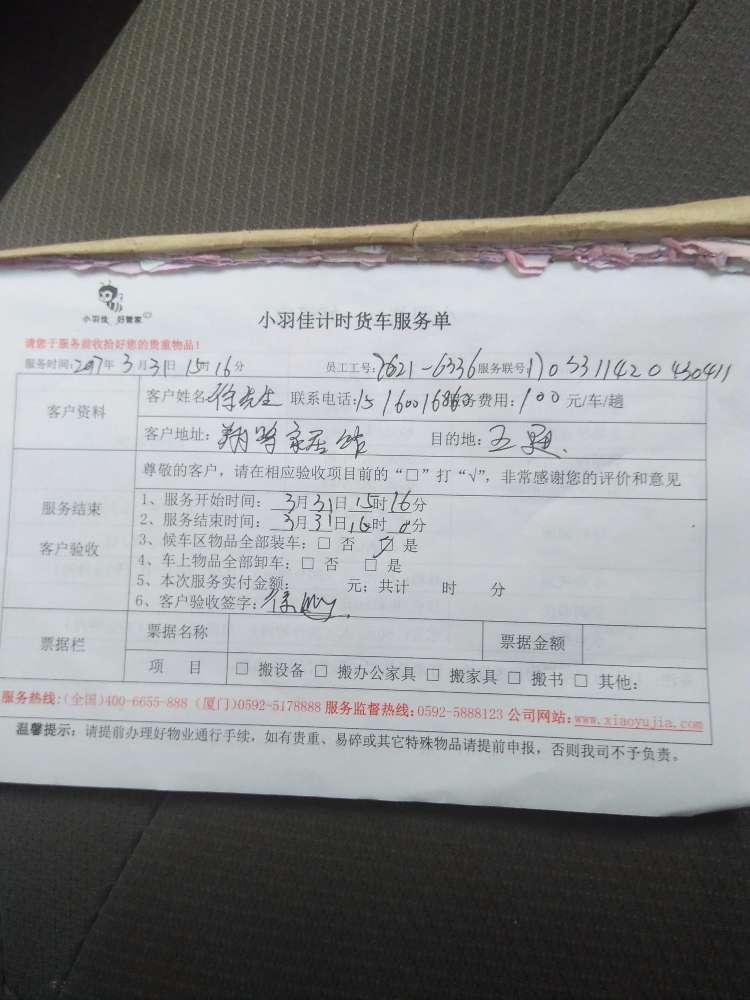 小羽佳 好管家
小羽佳计时货车服务单
请您于服务前收拾好您的贵重物品！
服务时间：2017年3月31日15时16分 员工工号：2621-6336 服务联号：
客户资料
客户姓名：徐先生 联系电话： 服务费用：100元/车/趟
客户地址：翔鹭家居 目的地：
服务结束
客户验收
尊敬的客户，请在相应验收项目前的“□”打“√”，非常感谢您的评价和意见
1、服务开始时间：3月31日15时16分
2、服务结束时间：3月31日16时分
3、候车区物品全部装车：□ 否 ☑ 是
4、车上物品全部卸车：□ 否 □ 是
5、本次服务实付金额： 元；共计 时 分
6、客户验收签字：徐
票据栏
票据名称 票据金额
项 目 □ 搬设备 □ 搬办公家具 □ 搬家具 □ 搬书 □ 其他：
服务热线：(全国)400-6655-888 (厦门)0592-5178888 服务监督热线：0592-5888123 公司网站：www.xiaoyujia.com
温馨提示：请提前办理好物业通行手续，如有贵重、易碎或其它特殊物品请提前申报，否则我司不予负责。